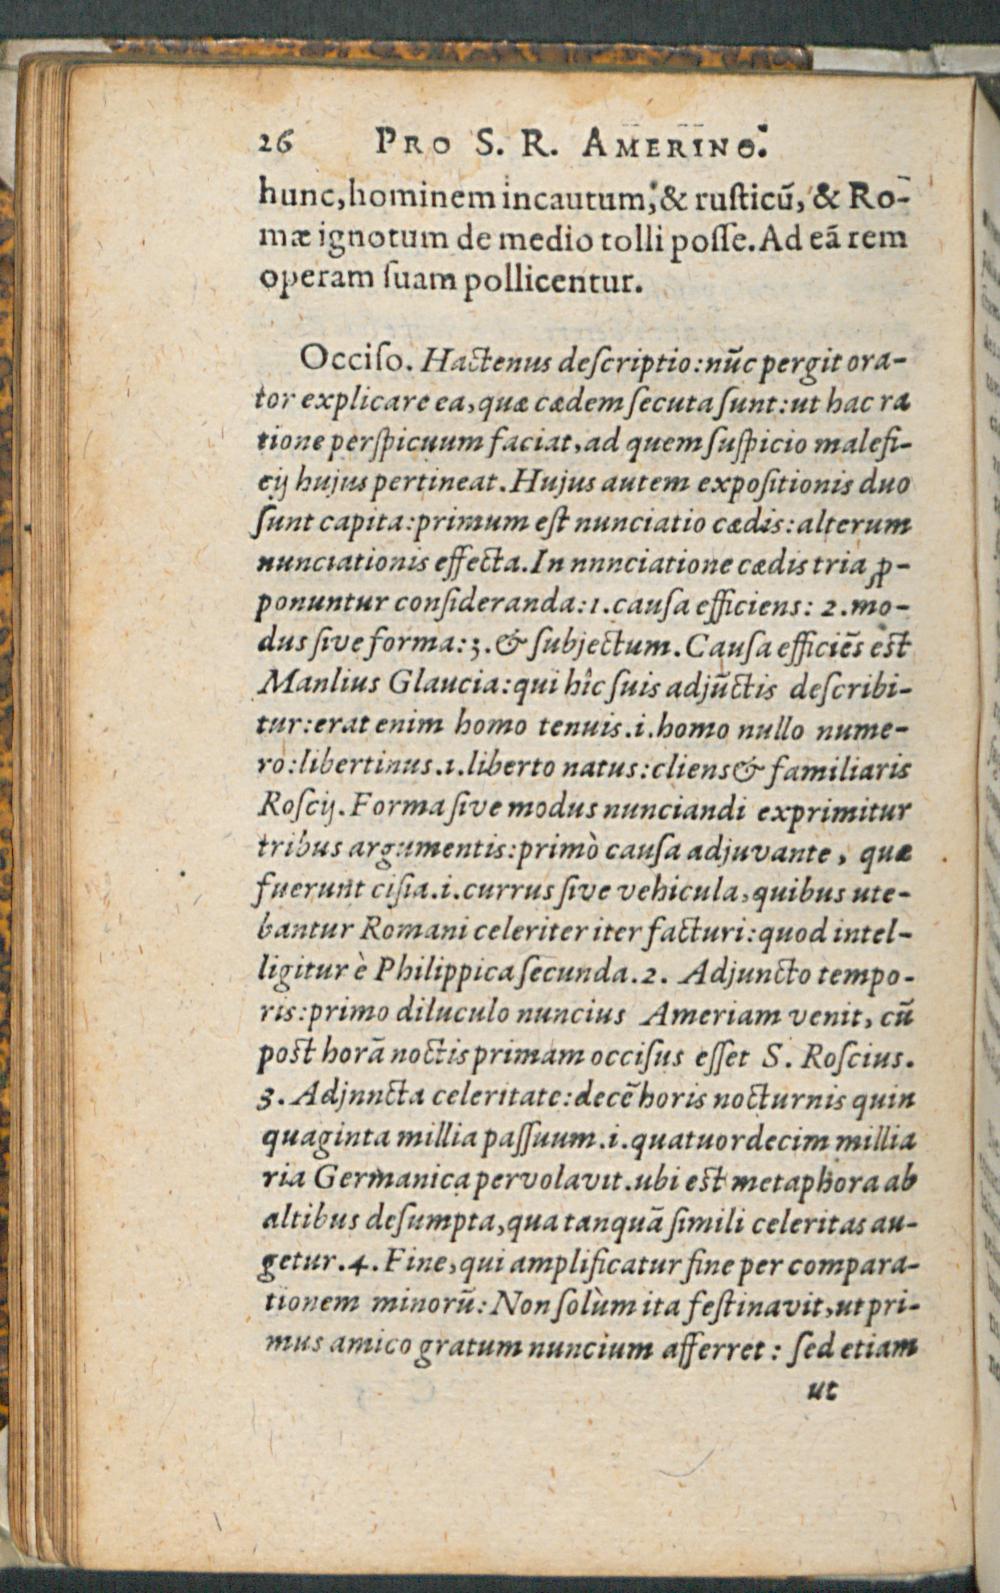 26 PRO S. R. AMERINO.
hunc, hominem incautum, & ruſticũ, & Ro-
mæ ignotum de medio tolli poſſe. Ad eã rem
operam ſuam pollicentur.
Occiſo. Hactenus deſcriptio: nũc pergit ora-
tor explicare ea, quæ cædem ſecuta ſunt: ut hac ra
tione perſpicuum faciat, ad quem ſuſpicio malefi-
cij hujus pertineat. Hujus autem expoſitionis duo
ſunt capita: primum eſt nunciatio cædis: alterum
nunciationis effecta. In nnnciatione cædis tria ꝓ-
ponuntur conſideranda: 1. cauſa efficiens: 2. mo-
dus ſive forma: 3. & ſubjectum. Cauſa efficiẽs eſt
Manlius Glaucia: qui hîc ſuis adjũctis deſcribi-
tur: erat enim homo tenuis .i. homo nullo nume-
ro: libertinus .i. liberto natus: cliens & familiaris
Roſcij. Forma ſive modus nunciandi exprimitur
tribus argumentis: primò cauſa adjuvante, quæ
fuerunt ciſia .i. currus ſive vehicula, quibus ute-
bantur Romani celeriter iter facturi: quod intel-
ligitur è Philippica ſecunda. 2. Adjuncto tempo-
ris: primo diluculo nuncius Ameriam venit, cũ
poſt horã noctis primam occiſus eſſet S. Roſcius.
3. Adjnncta celeritate: decẽ horis nocturnis quin
quaginta millia paſſuum .i. quatuordecim millia
ria Germanica pervolavit. ubi eſt metaphora ab
altibus deſumpta, qua tanquã ſimili celeritas au-
getur. 4. Fine, qui amplificatur fine per compara-
tionem minorũ: Non ſolùm ita feſtinavit, ut pri-
mus amico gratum nuncium afferret: ſed etiam
ut